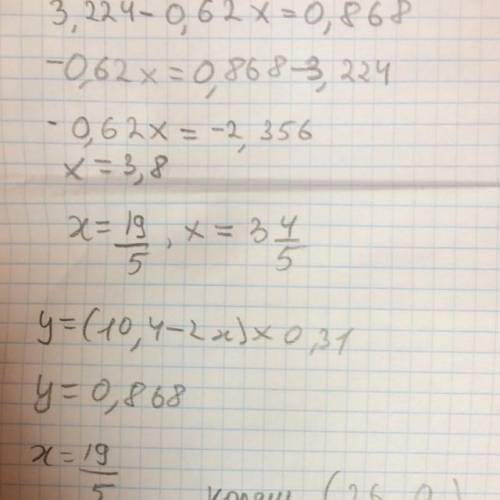 3,224-0,62x=0,868
-0,62x=0,868-3,224
-0,62x=-2,356
x=3,8
x=19/5, x=3 4/5
y=(10,4-2x)×0,31
y=0,868
x=19/5